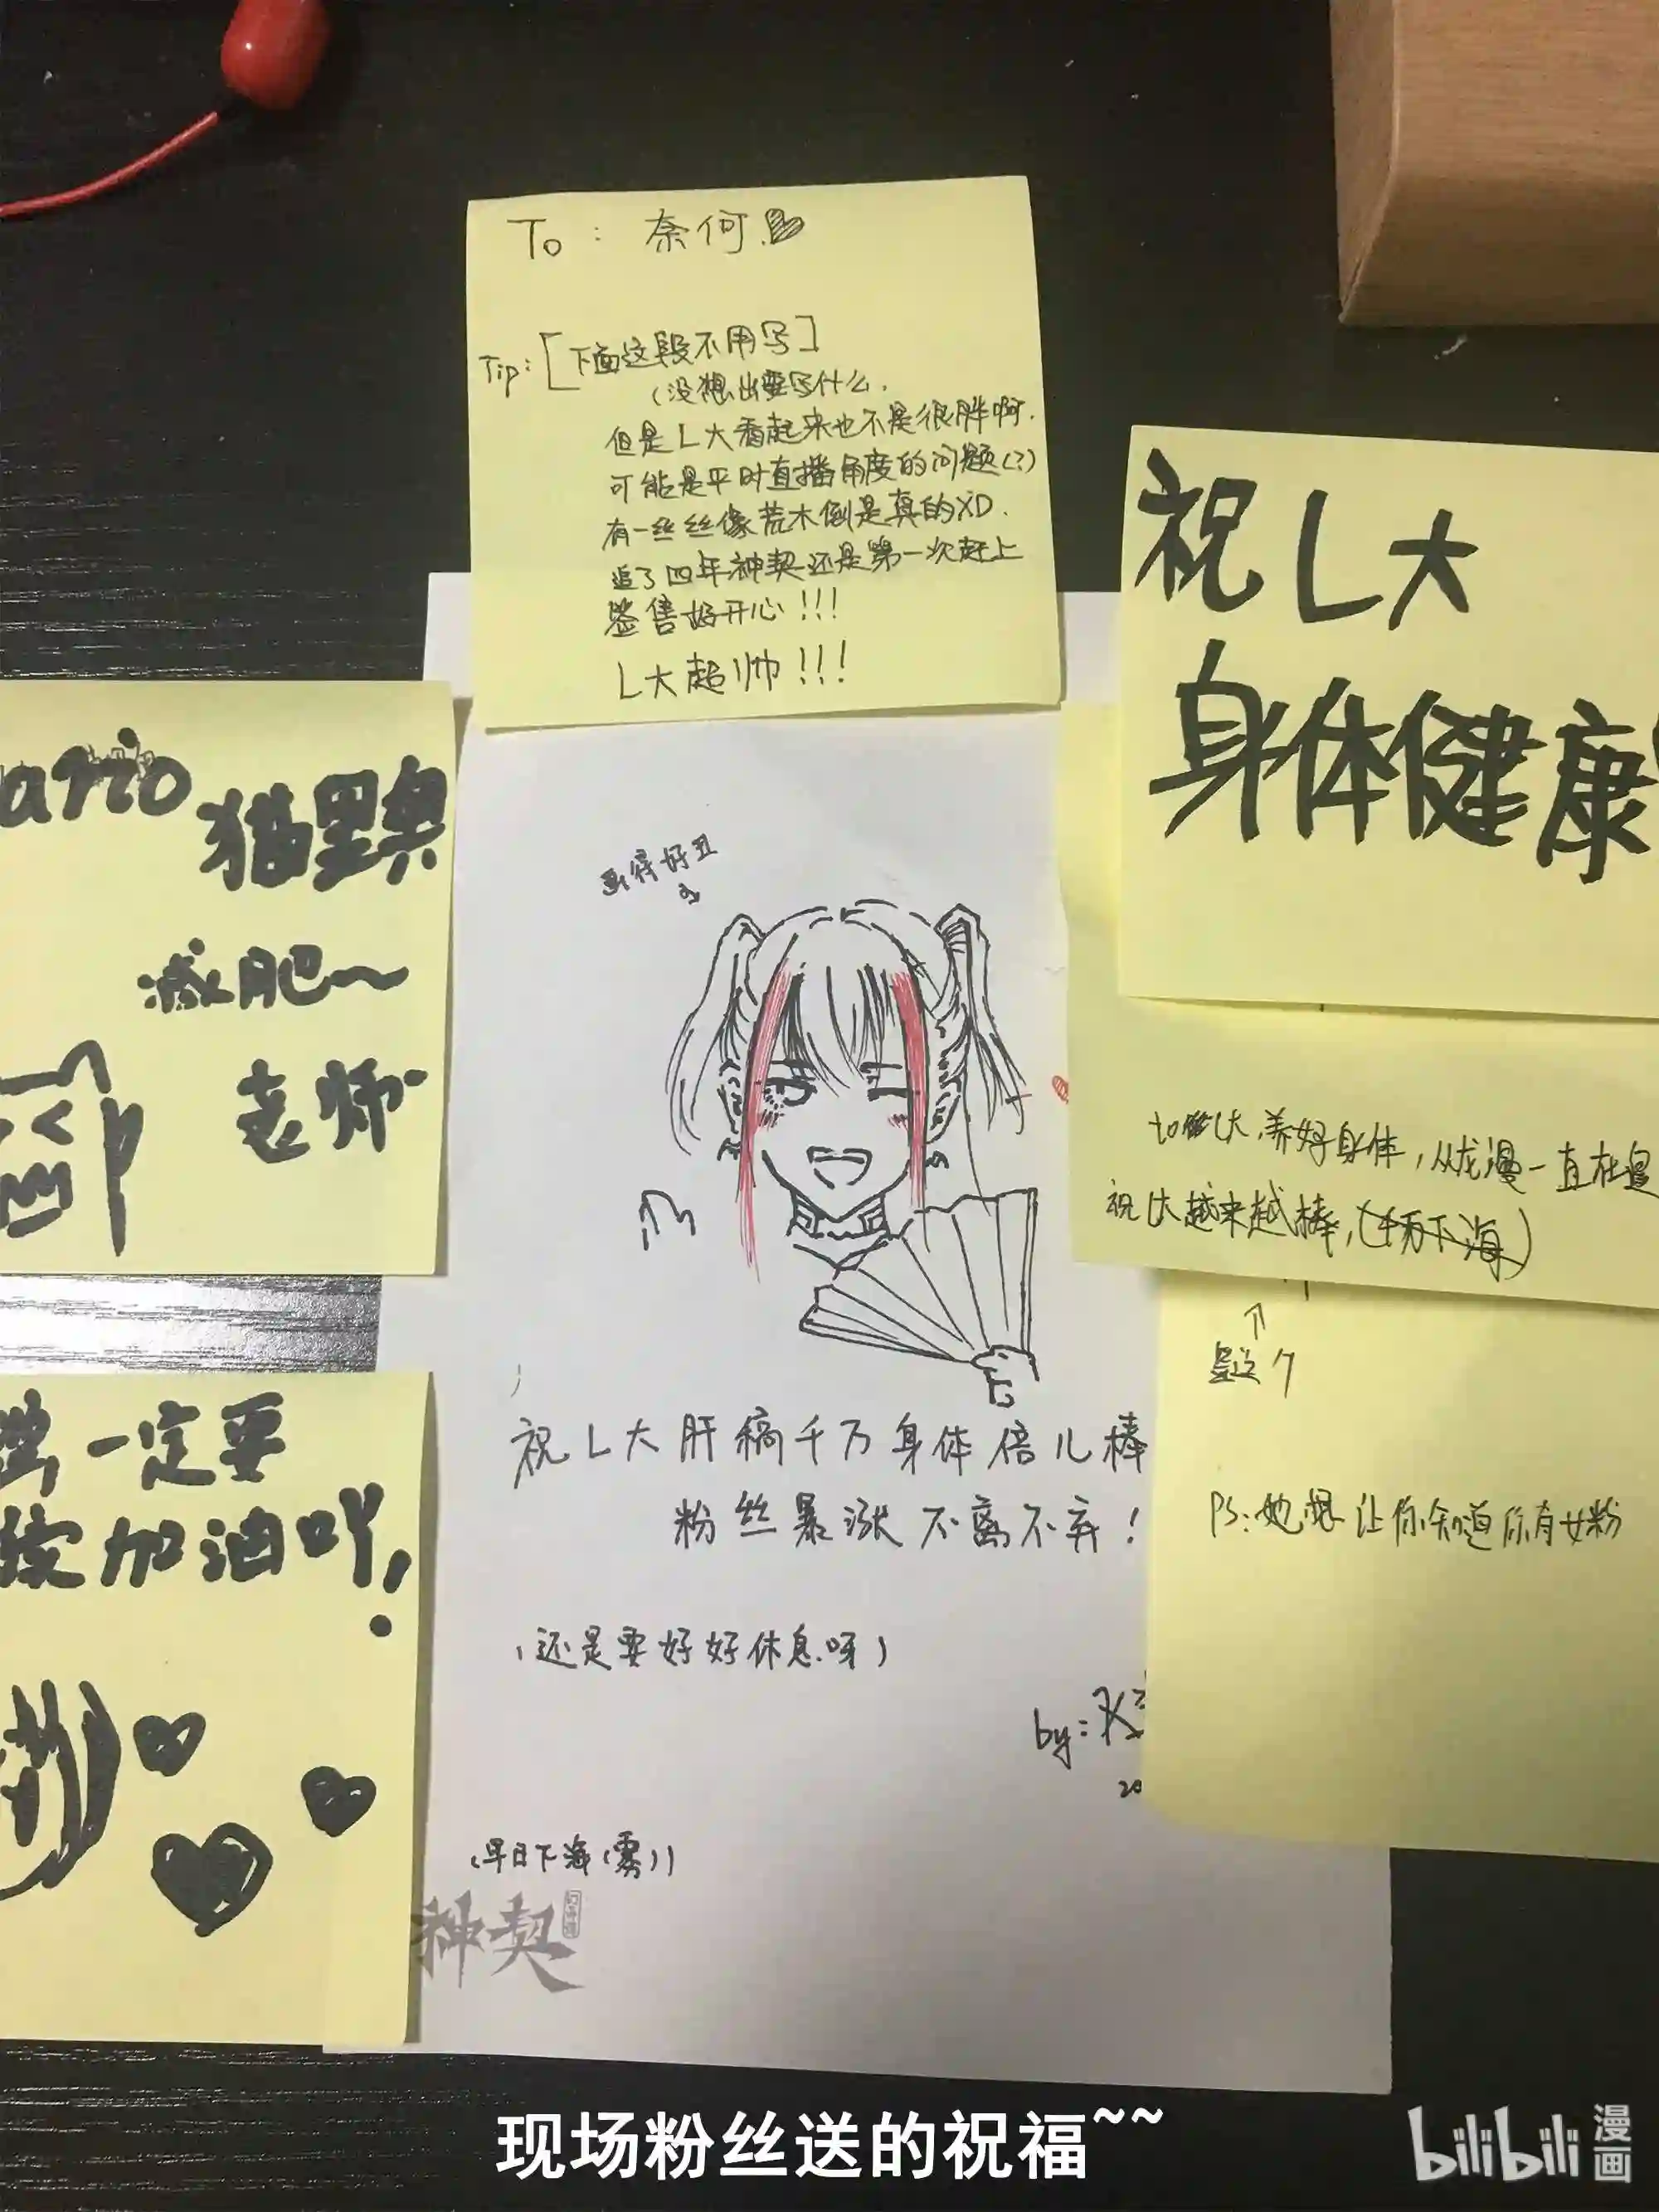 To: 奈何.
Tip:[下面这段不用写]
(没想出要写什么.
但是L大看起来也不是很胖啊.
可能是平时直播角度的问题(?)
有一丝丝像荒木倒是真的XD.
追了四年神契还是第一次赶上
签售好开心!!!
L大超帅!!!
祝L大
身体健康
ario 猫里奥
减肥~
老师
画得好丑
养好身体,从龙漫一直在追
祝L大越来越棒,
是这个
PS:她想让你知道你有女粉
一定要
加油吖!
祝L大肝稿千万身体倍儿棒
粉丝暴涨不离不弃!
(还是要好好休息呀)
by:
20
(早日下海(雾))
神契
现场粉丝送的祝福~~
bilibili 漫画